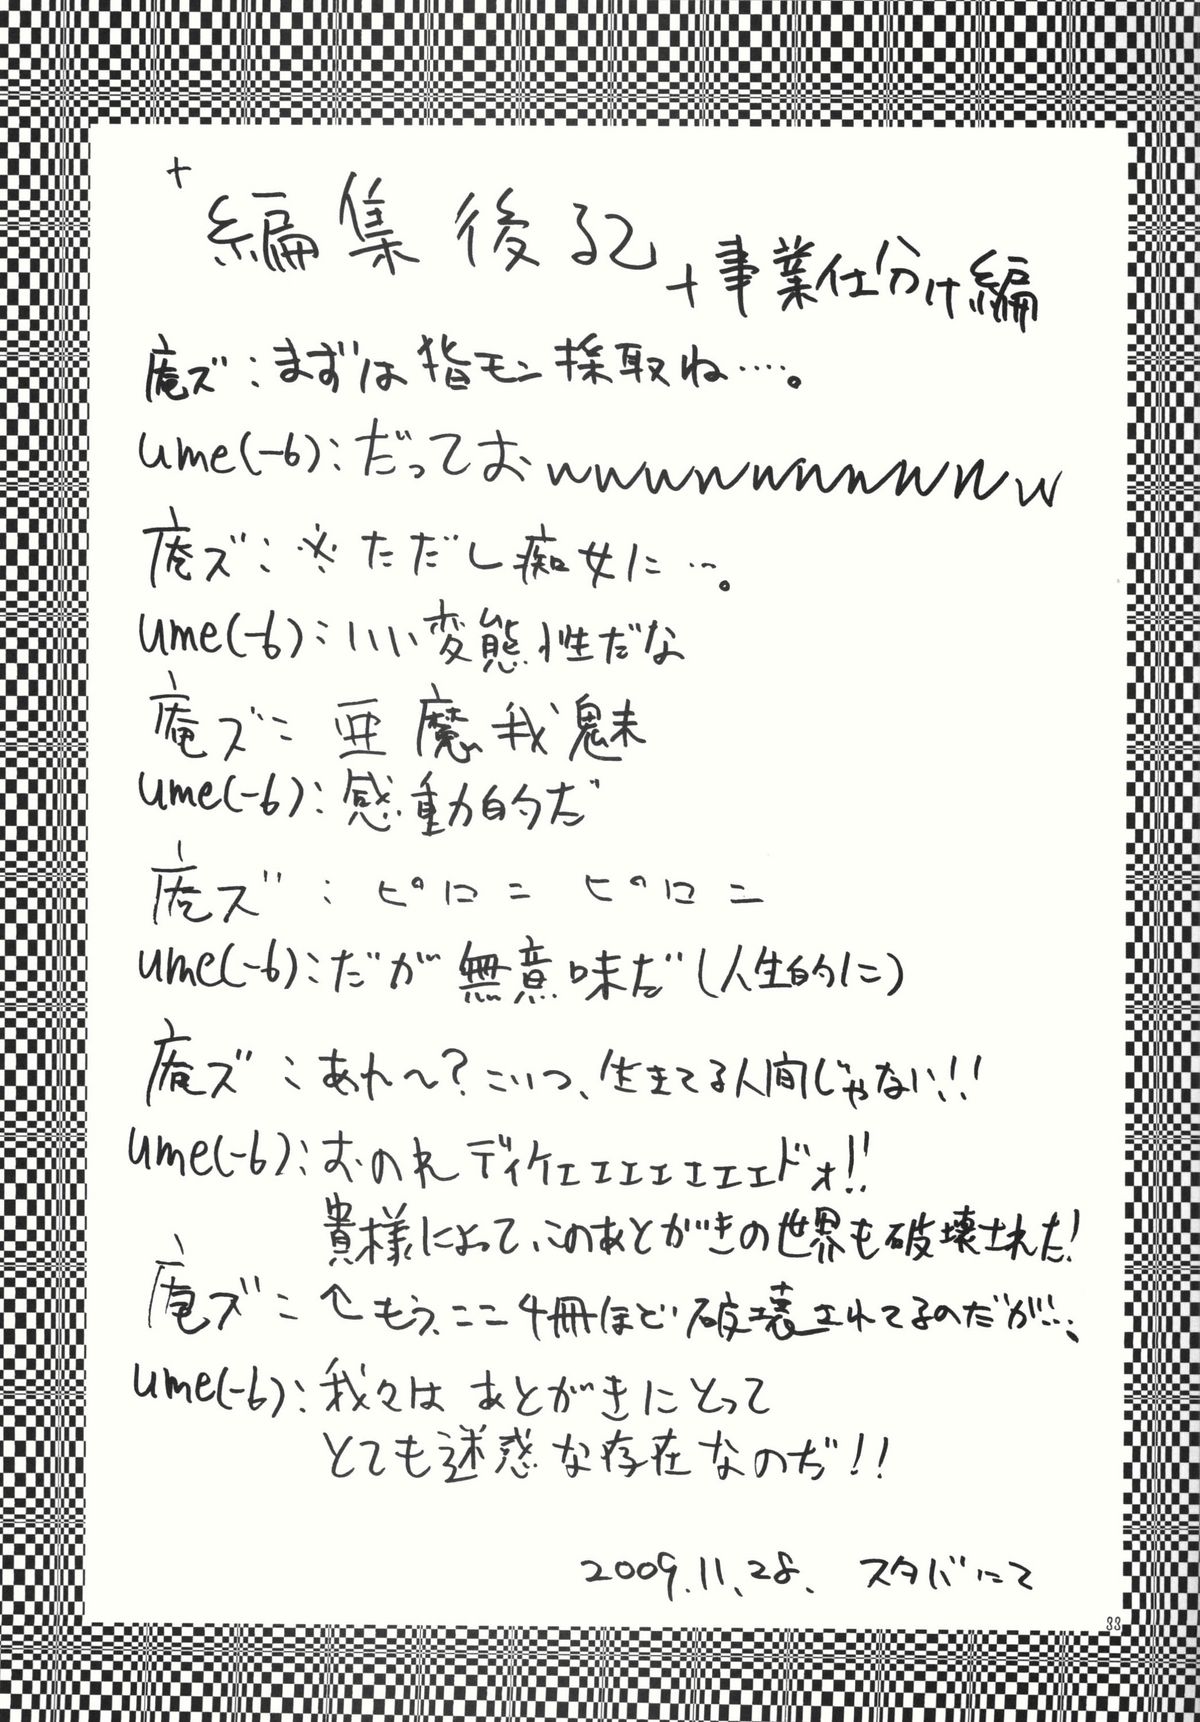 +編集後記
+事業仕分け編
庵ズ:まずは指モン採取ね……。
ume(-6):だっておwwwwwwwwwwww
庵ズ:※ただし痴女に…。
ume(-6):いい変態性だな
庵ズ:亜魔我魅
ume(-6):感動的だ
庵ズ:ピロニ ピロニ
ume(-6):だが無意味だ(人生的に)
庵ズ:あれ〜?こいつ、生きてる人間じゃない!!
ume(-6):おのれディケェェェェェェェドォ!!
貴様によって、このあとがきの世界も破壊された!
庵ズ:↑もう、ここ4冊ほど破壊されてるのだが…、
ume(-6):我々はあとがきにとって
とても迷惑な存在なのぢ!!
2009.11.28. スタバにて
33